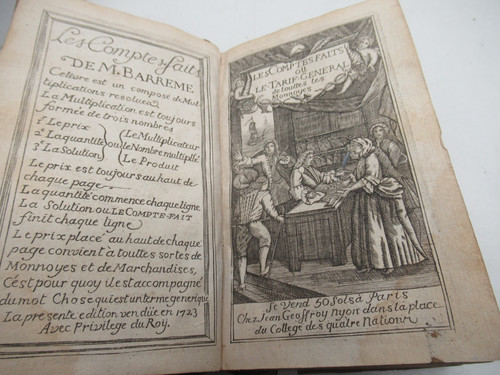 Les Comptes faits
DE M. BARREME
Ce livre est un composé de Mul
tiplications resolües
La Multiplication est toujours
formée de trois nombres
1º Le prix
2º La quantité
3º La Solution
ou
Le Multiplicateur
le Nombre multiplié
Le Produit
Le prix est toujours au haut de
chaque page
La quantité commence chaque ligne
La Solution ou LE COMPTE-FAIT
finit chaque ligne
Le prix placé au haut de chaque
page convient à touttes sortes de
Monnoyes et de Marchandises,
C'est pour quoy il est accompagné
du mot Chose qui est un terme generique
La presente edition vendüe en 1723
Avec Privilege du Roy.
LES COMPTES FAITS
OU
LE TARIF GENERAL
de touttes les
Monnoyes
Se Vend 50 Sols à Paris
Chez Jean Geoffroy Nyon dans la place
du College des quatre Nations